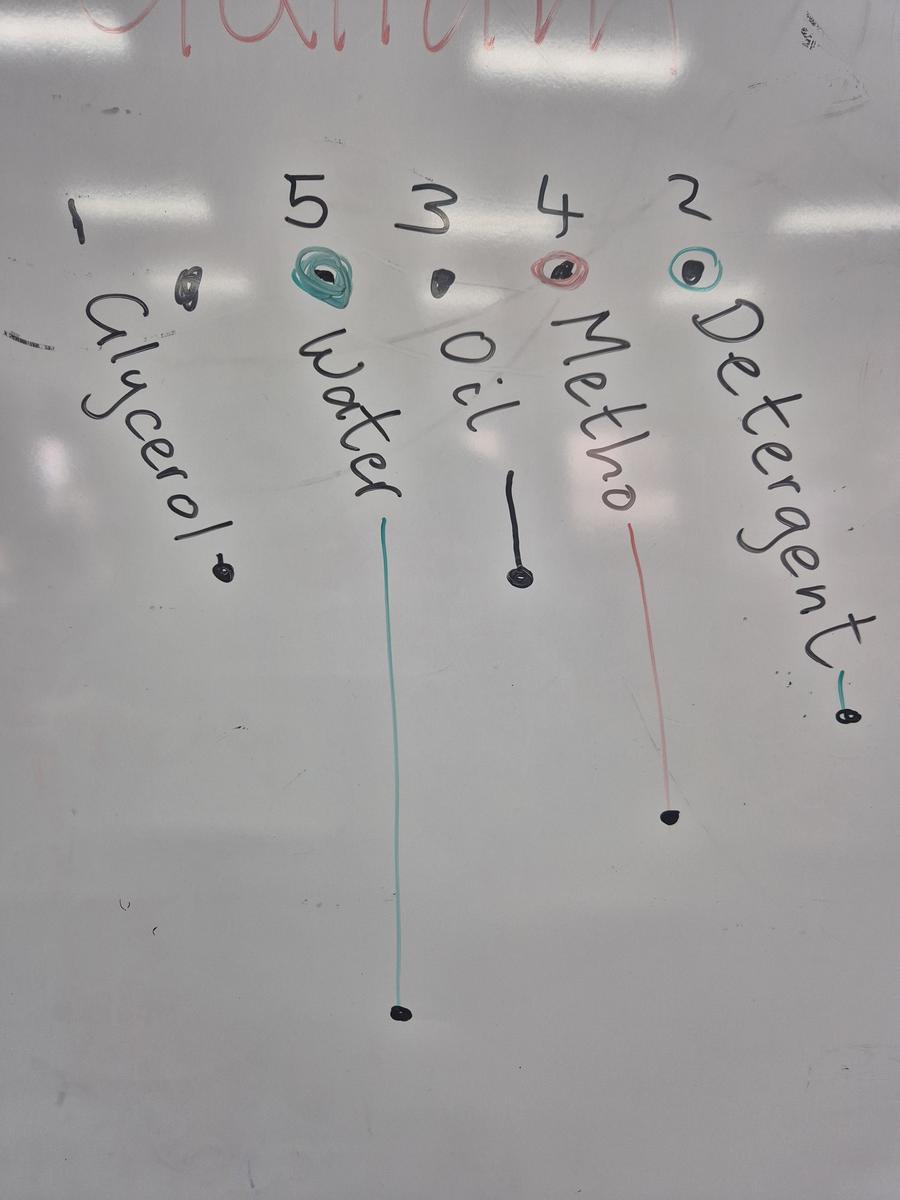 1 5 3 4 2
Glycerol
Water
Oil
Metho
Detergent